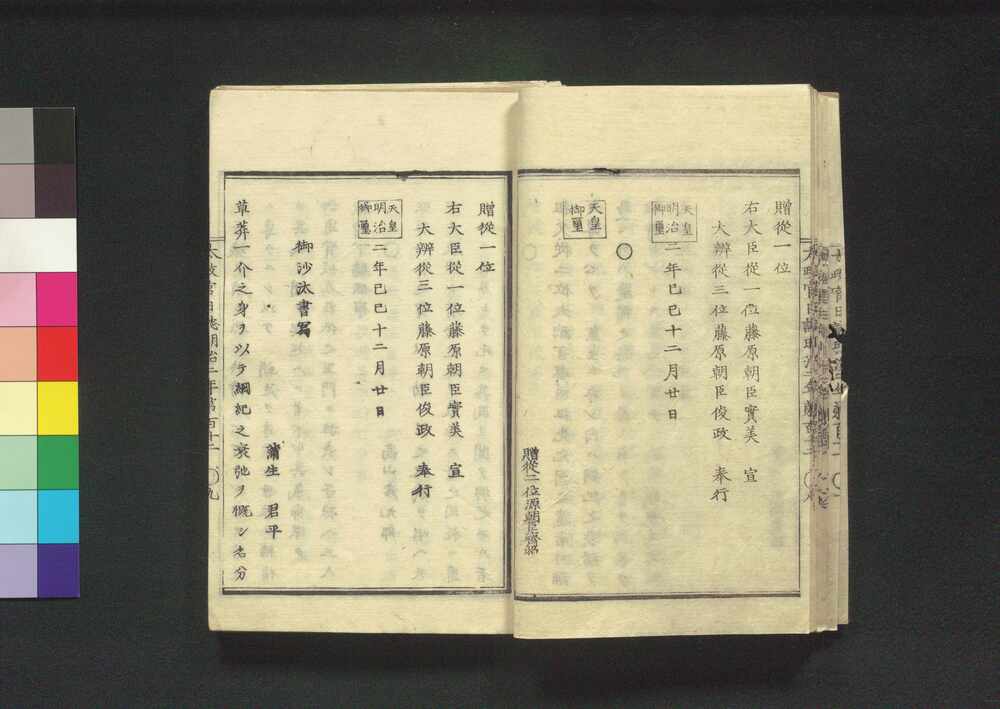 贈從一位
右大臣從一位藤原朝臣實美　宣
大辨從三位藤原朝臣俊政　奉行
天皇
明治二年己巳十二月廿日
御璽
○
天皇
御璽
贈從二位源朝臣齊昭
贈從一位
右大臣從一位藤原朝臣實美　宣
大辨從三位藤原朝臣俊政　奉行
天皇
明治二年己巳十二月廿日
御璽
御沙汰書寫
蒲生　君平
草莽一介之身ヲ以テ綱紀之衰弛ヲ慨シ名分
太政官日誌明治二年第百廿一　○九